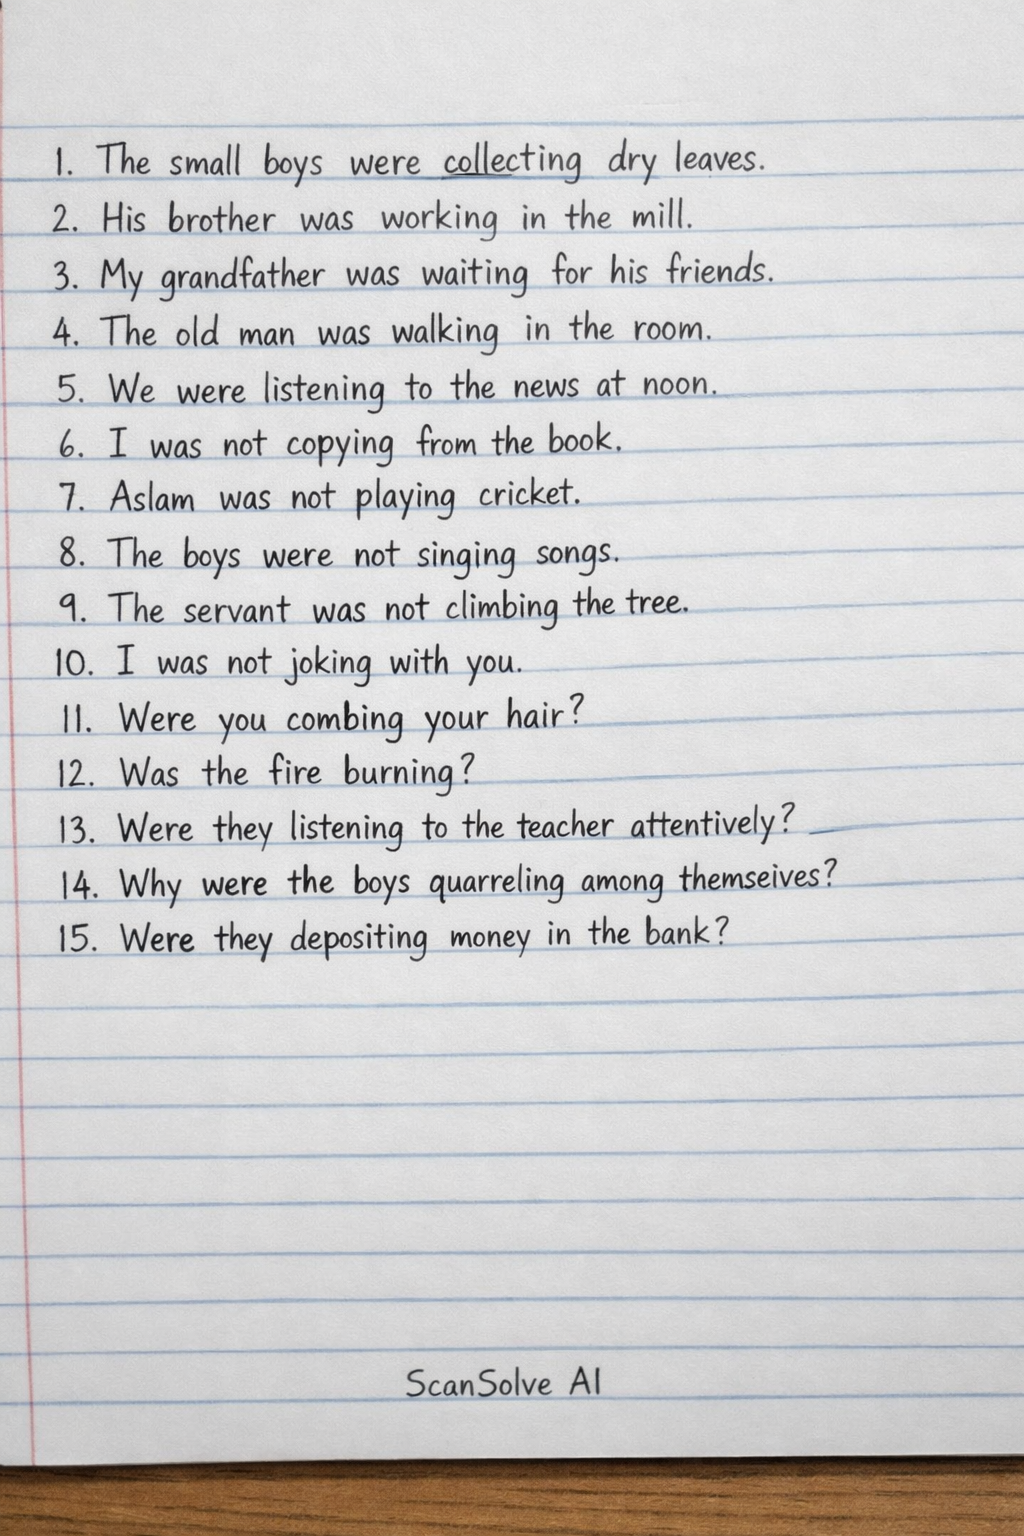 1. The small boys were collecting dry leaves.
2. His brother was working in the mill.
3. My grandfather was waiting for his friends.
4. The old man was walking in the room.
5. We were listening to the news at noon.
6. I was not copying from the book.
7. Aslam was not playing cricket.
8. The boys were not singing songs.
9. The servant was not climbing the tree.
10. I was not joking with you.
11. Were you combing your hair?
12. Was the fire burning?
13. Were they listening to the teacher attentively?
14. Why were the boys quarreling among themseives?
15. Were they depositing money in the bank?
ScanSolve AI